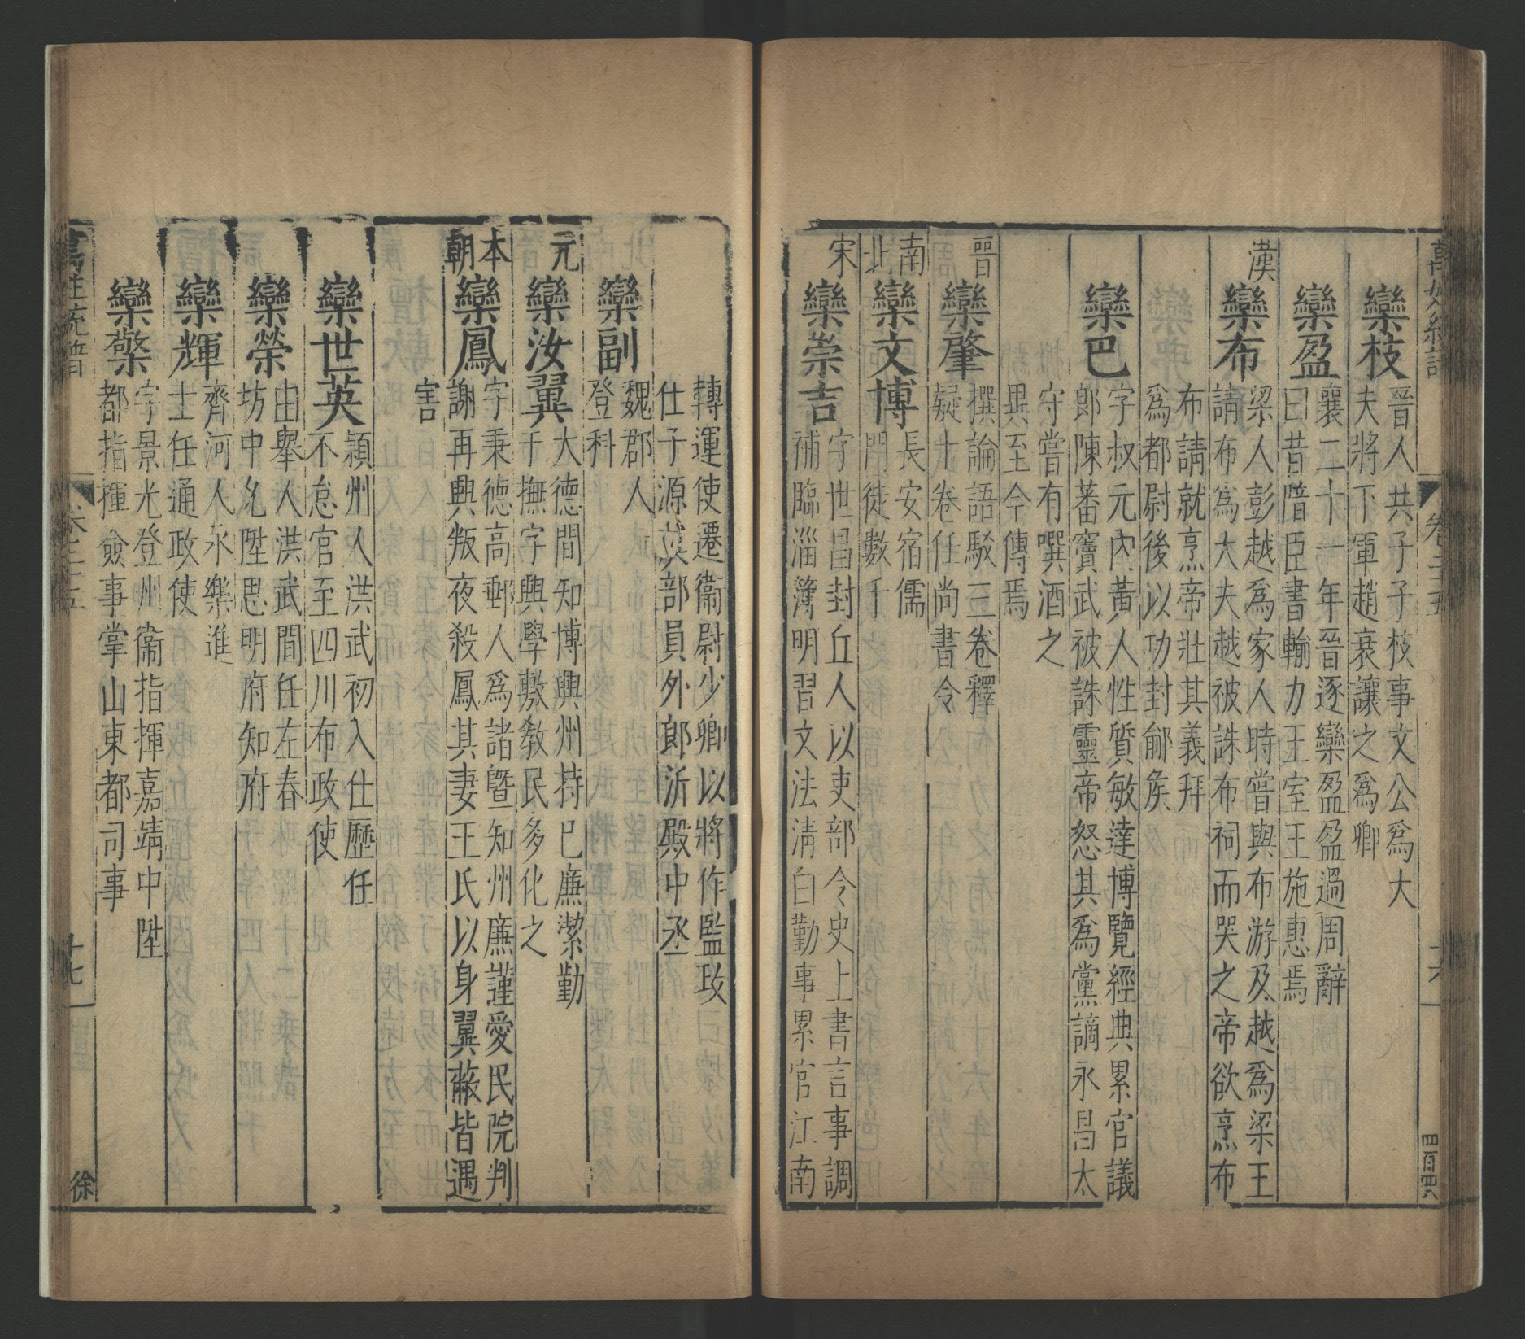 萬姓統譜
卷二十五
十六
四百四八
欒枝
晉人共子子枝事文公爲大
夫將下軍趙衰讓之爲卿
欒盈
襄二十一年晉逐欒盈盈過周辭
曰昔陪臣書輸力王室王施惠焉
漢
欒布
梁人彭越爲家人時嘗與布游及越爲梁王
請布布爲大夫越被誅布祠而哭之帝欲烹布
布請就烹帝壯其義拜
爲都尉後以功封鄃矦
欒巴
字叔元內黃人性質敏達博覽經典累官議
郎陳蕃竇武被誅靈帝怒其爲黨謫永昌太
守嘗有噀酒之
異至今傳焉
晉
欒肇
撰論語駁三卷釋
疑十卷任尚書令
南
北
欒文博
長安宿儒
門徒數千
宋
欒崇吉
字世昌封丘人以吏部令史上書言事調
補臨淄簿明習文法淸白勤事累官江南
轉運使遷衞尉少卿以將作監致
仕子源 部員外郎 殿中丞
欒副
魏郡人
登科
元
欒汝翼
大德間知博興州持已廉潔勤
于撫字興學敷敎民多化之
本
朝
欒鳳
字秉德高郵人爲諸曁知州廉謹愛民院判
謝再興叛夜殺鳳其妻王氏以身翼蔽皆遇
害
欒世英
潁州人洪武初入仕歷任
不怠官至四川布政使
欒榮
由舉人洪武間任左春
坊中允陞思明府知府
欒輝
齊河人永樂進
士任通政使
欒檠
字景光登州衞指揮嘉靖中陞
都指揮僉事掌山東都司事
萬姓統譜
卷二十五
十七
徐